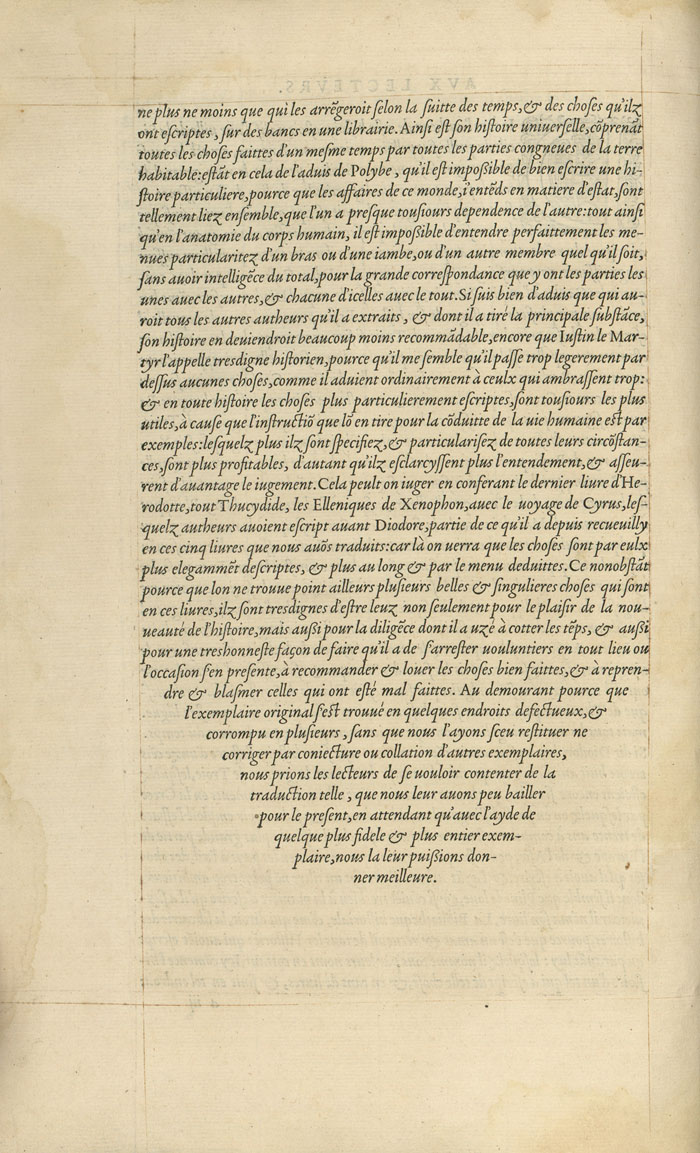 ne plus ne moins que qui les arrẽgeroit ſelon la ſuitte des temps,& des choſes qu'ilz
ont eſcriptes, ſur des bancs en une librairie. Ainſi eſt ſon hiſtoire uniuerſelle,cõprenãt
toutes les choſes faittes d'un meſme temps par toutes les parties congneues de la terre
habitable:eſtãt en cela de l'aduis de Polybe, qu'il est impoßible de bien eſcrire une hi-
ſtoire particuliere,pource que les affaires de ce monde,i'entẽds en matiere d'eſtat,ſont
tellement liez enſemble,que l'un a preſque touſiours dependence de l'autre:tout ainſi
qu'en l'anatomie du corps humain, il eſt impoßible d'entendre perfaittement les me-
nues particularitez d'un bras ou d'une iambe,ou d'un autre membre quel qu'il ſoit,
ſans auoir intelligẽce du total,pour la grande correſpondance que y ont les parties les
unes auec les autres,& chacune d'icelles auec le tout.Si ſuis bien d'aduis que qui au-
roit tous les autres autheurs qu'il a extraits, & dont il a tiré la principale ſubſtãce,
ſon hiſtoire en deuiendroit beaucoup moins recommãdable,encore que Iuſtin le Mar-
tyr l'appelle tresdigne hiſtorien,pource qu'il me ſemble qu'il paſſe trop legerement par
deſſus aucunes choſes,comme il aduient ordinairement à ceulx qui ambraſſent trop:
& en toute hiſtoire les choſes plus particulierement eſcriptes,ſont touſiours les plus
utiles,à cauſe que l'inſtructiõ que lõ en tire pour la cõduitte de la uie humaine eſt par
exemples:leſquelz plus ilz ſont ſpecifiez,& particulariſez de toutes leurs circõſtan-
ces,ſont plus profitables, d'autant qu'ilz eſclarcyſſent plus l'entendement,& aſſeu-
rent d'auantage le iugement.Cela peult on iuger en conferant le dernier liure d'He-
rodotte,tout Thucydide, les Elleniques de Xenophon,auec le uoyage de Cyrus,leſ-
quelz autheurs auoient eſcript auant Diodore,partie de ce qu'il a depuis recueuilly
en ces cinq liures que nous auõs traduits:car là on uerra que les choſes ſont par eulx
plus elegammẽt deſcriptes, & plus au long & par le menu deduittes.Ce nonobſtãt
pource que lon ne trouue point ailleurs pluſieurs belles & ſingulieres choſes qui ſont
en ces liures,ilz ſont tresdignes d'eſtre leuz non ſeulement pour le plaiſir de la nou-
ueauté de l'hiſtoire,mais außi pour la diligẽce dont il a uzé à cotter les tẽps, & außi
pour une treshonneſte façon de faire qu'il a de s'arreſter uouluntiers en tout lieu ou
l'occaſion s'en preſente,à recommander & louer les choſes bien faittes,& à repren-
dre & blaſmer celles qui ont eſté mal faittes. Au demourant pource que
l'exemplaire original s'eſt trouué en quelques endroits defectueux,&
corrompu en pluſieurs, ſans que nous l'ayons ſceu reſtituer ne
corriger par coniecture ou collation d'autres exemplaires,
nous prions les lecteurs de ſe uouloir contenter de la
traduction telle, que nous leur auons peu bailler
pour le preſent,en attendant qu'auec l'ayde de
quelque plus fidele & plus entier exem-
plaire,nous la leur puißions don-
ner meilleure.